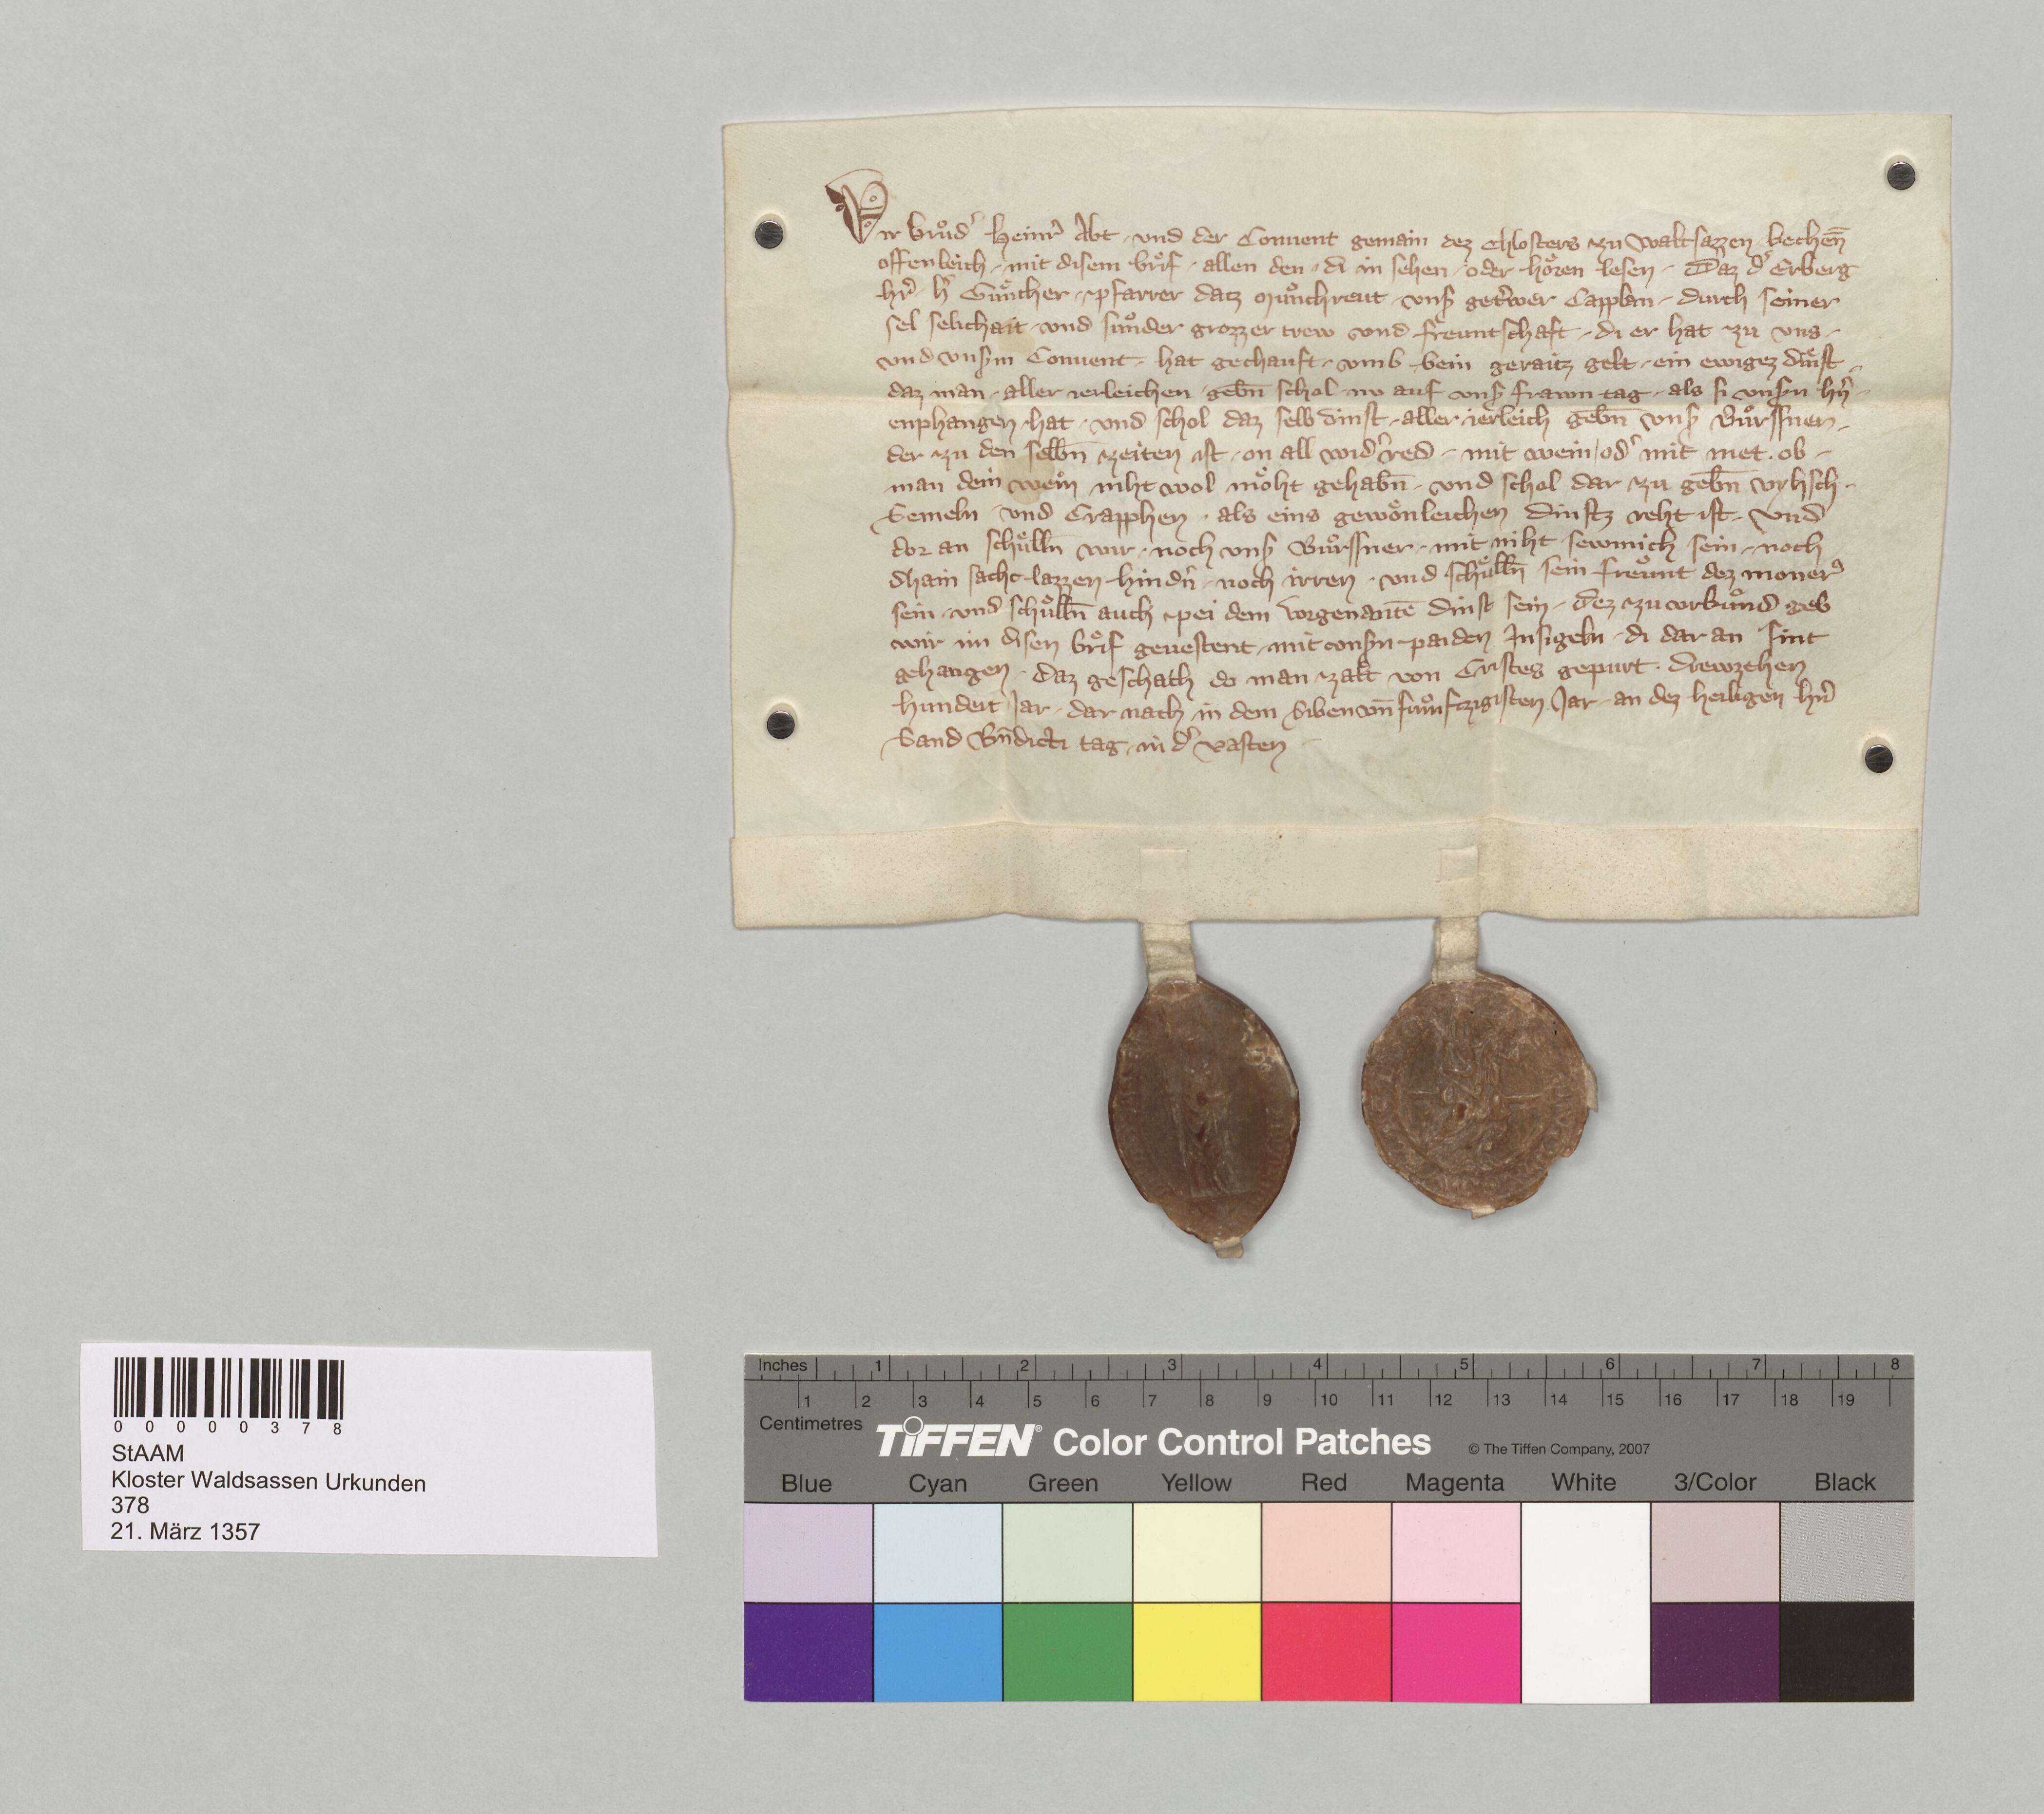 Wir bruͦd' Heinr' Abt · vnd der Conuent gemain dez chlosters zu Waltsazzen bechen̄
offenleich · mit disem brͦif · allen den · di in sehen · oder hoͤren lesen · Daz d' Erberg
hr' · h' Guͤncher · pfarrer datz Muͦnchreut · vnsˀ get'wer Capplan · durch seiner
sel selichait · vnd suͦnder grozzer trew vnd freuntschaft · di er hat zu vns ·
vnd vnsˀm Conuent · hat gechauft · vmb sein geraitz gelt · ein ewigez dinst ·
daz man · aller ierleichen geb̄n schol · nv auf vnsˀ frawn tag · als si vnsˀn hr̄n
enphangen hat · vnd schol daz selb dinst · aller ierleich geb̄n vnsˀ Buͦrssner ·
der zu den selb̄n zeiten ist · on all wid'red · mit wein od' mit met · ob ·
man dein wein niht wol moͤht gehab̄n · vnd schol dar zu geb̄n vyhsch ·
Semeln vnd Crapphen · als eins gewoͤnleichen dinstz reht ist · Vnd
dor an schuͤll̄n wir · noch vnsˀ Buͦrssner · mit niht sewmich sein · noch
dhain sache lazzen hind'n · noch irren · vnd schuͤll̄n sein freuͤnt dez moner'
sein · vnd schuͤll̄n auch pei dem vorgenantē dinst sein · Dez zu vrkuͦnd geb
wir im disen brͦif geuestent · mit vnsˀn paiden Insigeln · di dar an sint
gehangen · Daz geschach do man zalt von Cristes gepurt · drewzehen
hundert Jar · dar nach in dem Siben vn̄ fuͦnftzigisten Jar · an dez heiligen hr̄n
Sand Bn̄dicti tag · in d' vasten
0 0 0 0 0 3 7 8
StAAM
Kloster Waldsassen Urkunden
378
21. März 1357
Inches 1 2 3 4 5 6 7 8
1 2 3 4 5 6 7 8 9 10 11 12 13 14 15 16 17 18 19
Centimetres
TIFFEN® Color Control Patches © The Tiffen Company, 2007
Blue Cyan Green Yellow Red Magenta White 3/Color Black